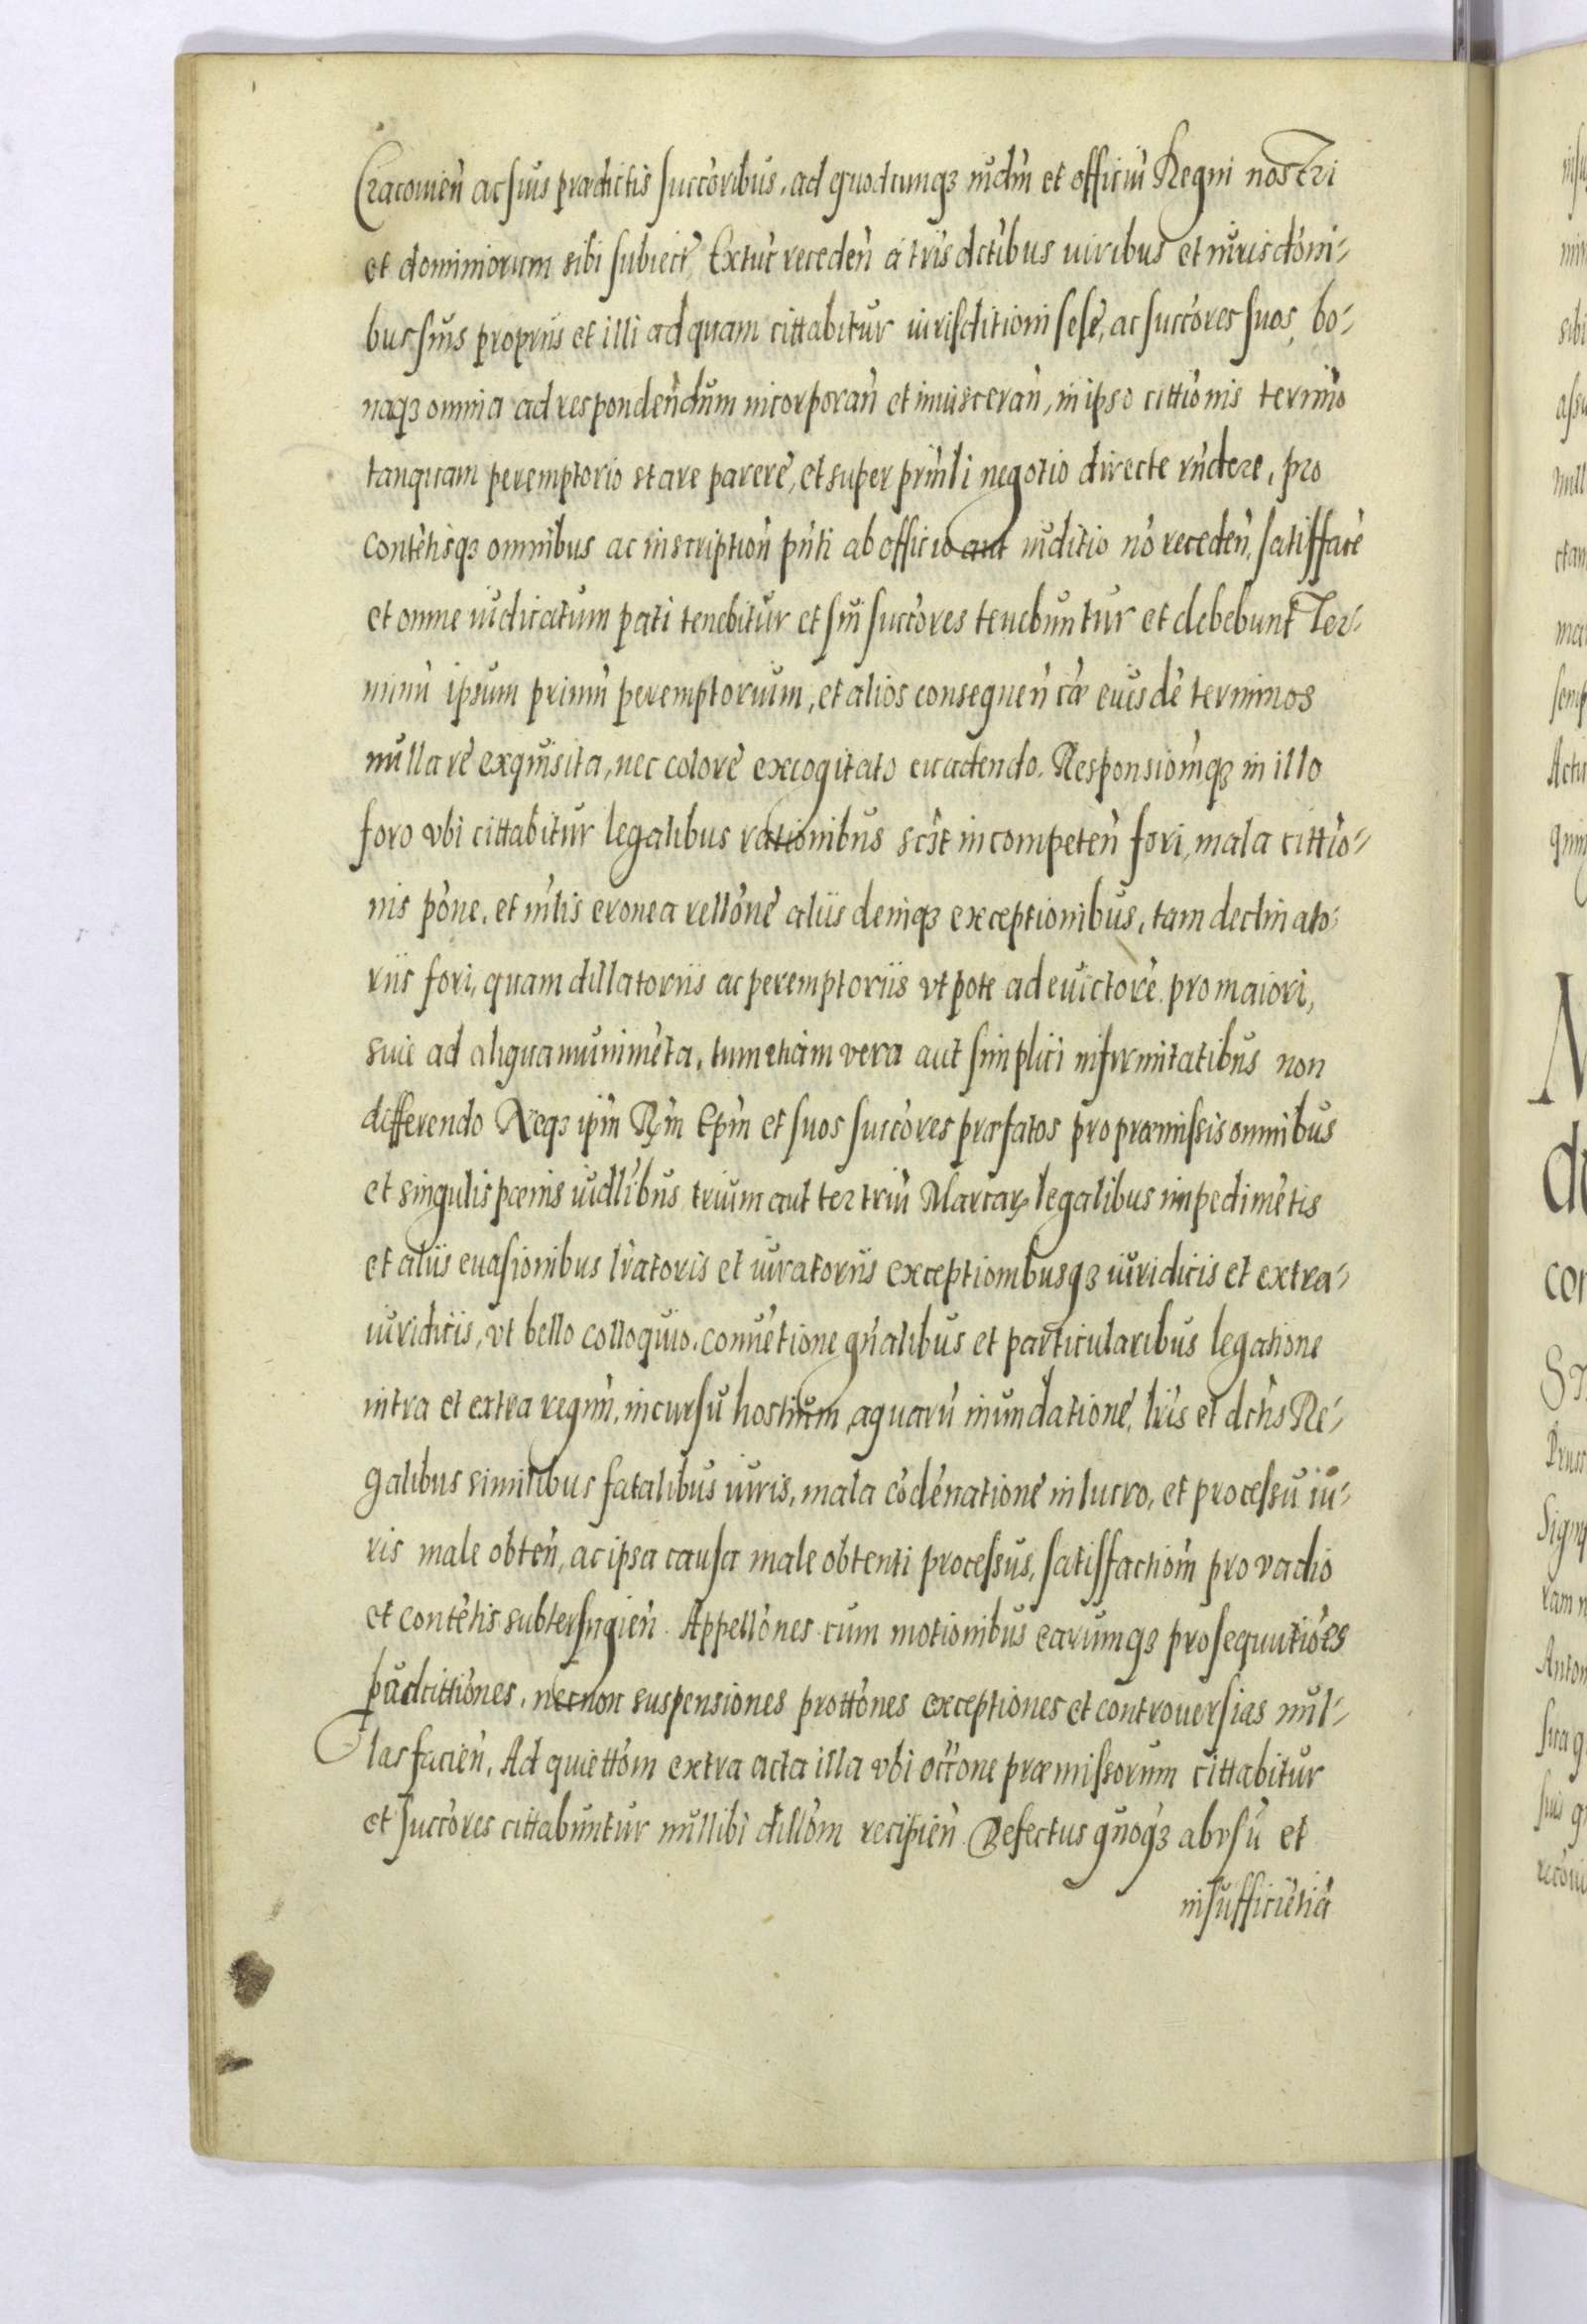 Cracouieñ ac suis prædictis succ̀oribus, ad quodcunqꝫ iud̀m et officiù Regni nostri
et dominiorum sibi subiect̀, Extùc recedeǹ à tr̀is dct̀ibus uiribus et iurisdc̀oni⸗
bus suis proprijs et illi ad quam cittabitur iurisdictioni sese, ac succ̀ores suos, bo⸗
naqꝫ omnia ad respondendum incorporañ et inuiscerañ, in ipso citt̀ionis termiǹo
tanquam peremptorio stare parere, et super prin̄li negotio directe rñdere, pro
contet̀isqꝫ omnibus ac inscription̄ pñti ab officio aut iuditio nò recedeǹ, satisfac̀e
et omne iudicatum pati tenebitur et sui succ̀ores tenebuntur et debebunt Ter⸗
minù ipsum primù peremptorium, et alios consequeǹ cæ eiusdè terminos
nulla re exquisita, nec colore excogitato euadendo. Responsiom̀qꝫ in illo
foro vbi cittabitur legalibus rationibus sc̀it incompeteǹ fori, mala cittio⸗
nis pòne, et iǹ lis eronea rellòne aliis deniqꝫ exceptionibus, tam declinato⸗
riis fori, quam dillatoriis ac peremptoriis vt pote ad euictore pro maiori,
siue ad aliqua munimèta, tum etiam vera aut simplici infirmitatibus non
differendo Neqꝫ ip̀m Rm̀ Ep̀m et suos succ̀ores præfatos pro præmissis omnibus
et singulis pænis iudl̀ibus trium aut ter triù Marcaꝝ legalibus impedimètis
et aliis euasionibus lr̀atoris et iuratoriis exceptionibusqꝫ iuridicis et extra⸗
iuridicis, vt bello colloquio, conuètione gñalibus et particularibus legatione
intra et extra regnù, incursu hostium, aquarù inundatione, lr̀is et dct̀is Re⸗
galibus similibus fatalibus iuris, mala còdènatione in lucro, et processu iu⸗
ris male obteñ, ac ipsa causa male obtenti processus, satisfactiom̀ pro vadio
et contèt̀is subterfugieǹ. Appellònes cum motionibus earumqꝫ prosequutiòes
pùd cittiònes, nec non suspensiones prottònes exceptiones et controuersias nul⸗
las facieǹ, Ad quiettòm extra acta illa vbi occòne præmissorum cittabitur
et succ̀ores cittabuntur nullibi dillòm recipieǹ. Defectus quoqꝫ abvsù et
insufficiètià